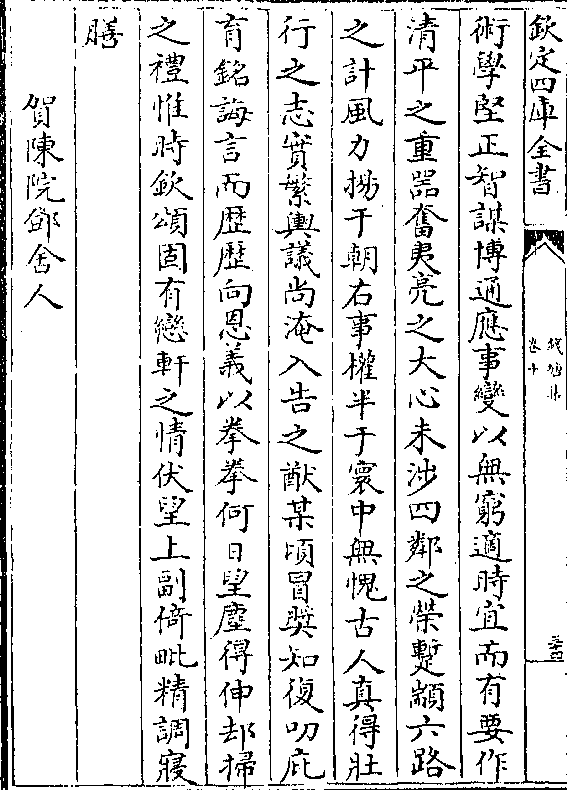 欽定四庫全書
錢塘集
卷十
三十四
術學堅正智謀博通應事變以無窮適時宜而有要作
清平之重噐奮夷亮之大心未涉四鄰之榮蹔顓六路
之計風力揚于朝右事權半于寰中無愧古人真得壯
行之志實繁輿議尚淹入告之猷某頃冒奬知復叨庇
育銘誨言而歴歴向恩義以拳拳何日望塵得伸却掃
之禮惟時欽頌固有戀軒之情伏望上副倚毗精調寢
膳
賀陳院鄧舍人